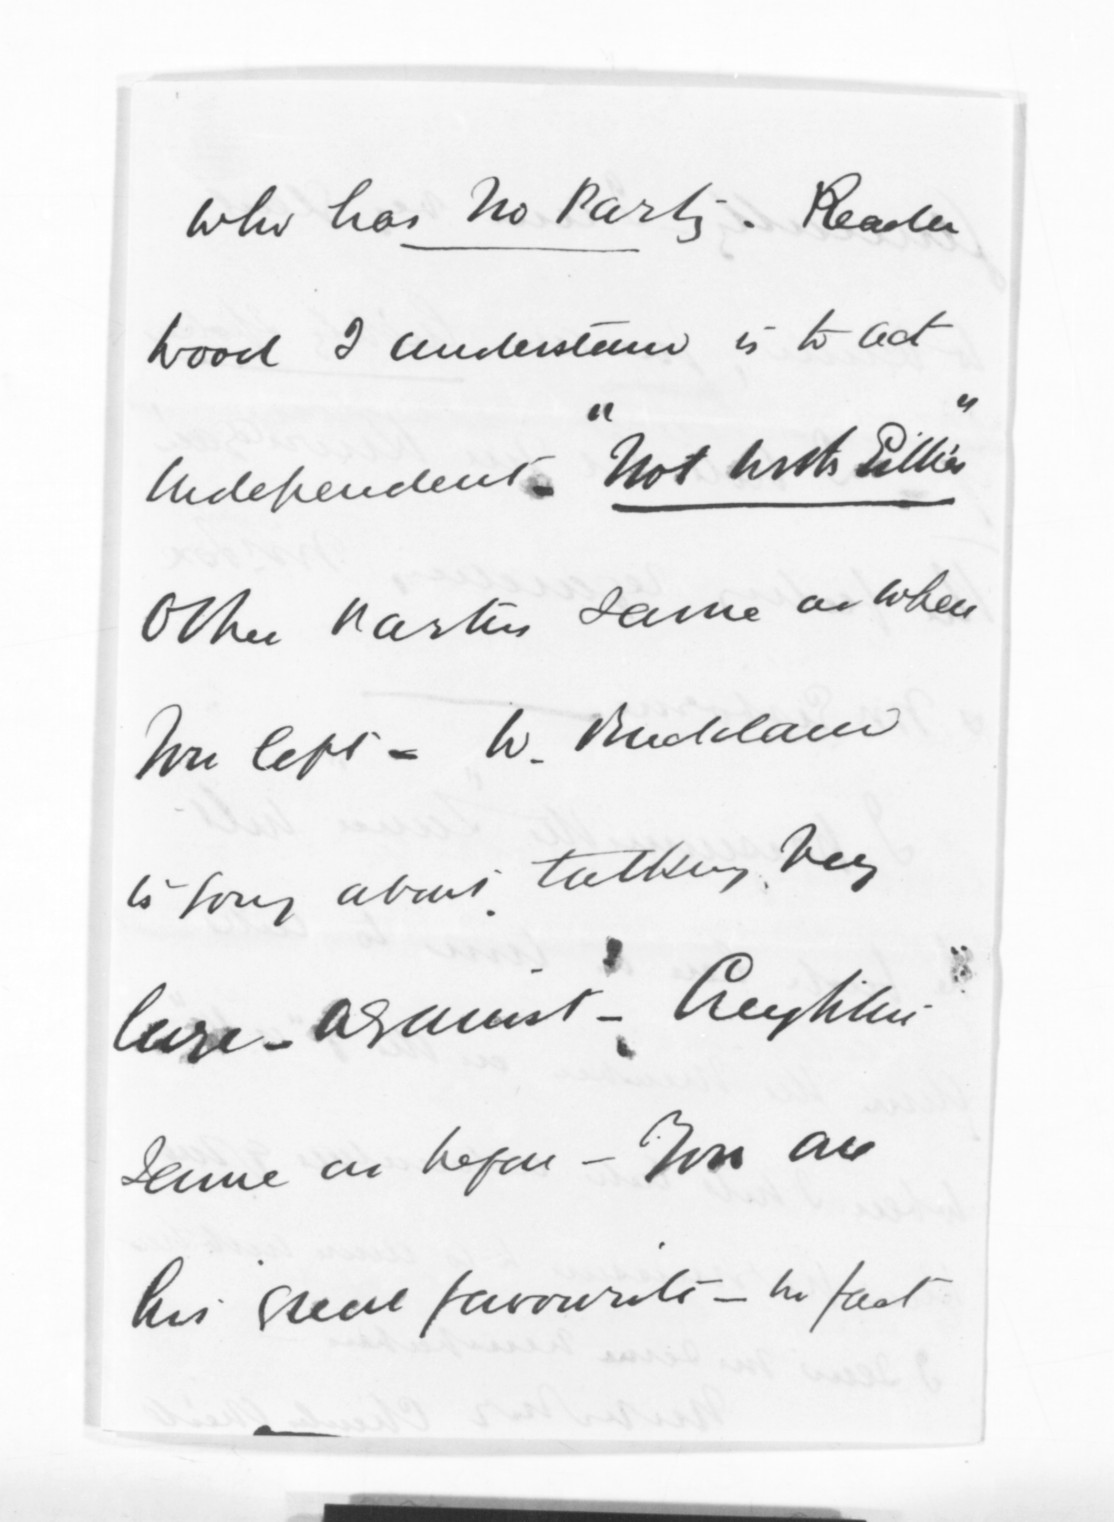 who has No Party. Reader
Wood I understand is to act
Independent - "Not with Gillies"
Other parties same as when
You left - W. Buckland
is going about talking very
large - against - Creighton
same as before - You are
his great favourite - in fact